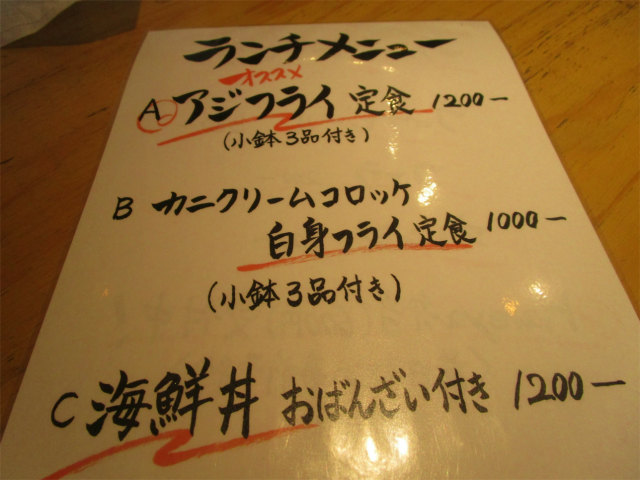 ランチメニュー
オススメ
A アジフライ定食 1200ー
(小鉢3品付き)
B カニクリームコロッケ
白身フライ定食 1000ー
(小鉢3品付き)
C 海鮮丼 おばんざい付き 1200ー